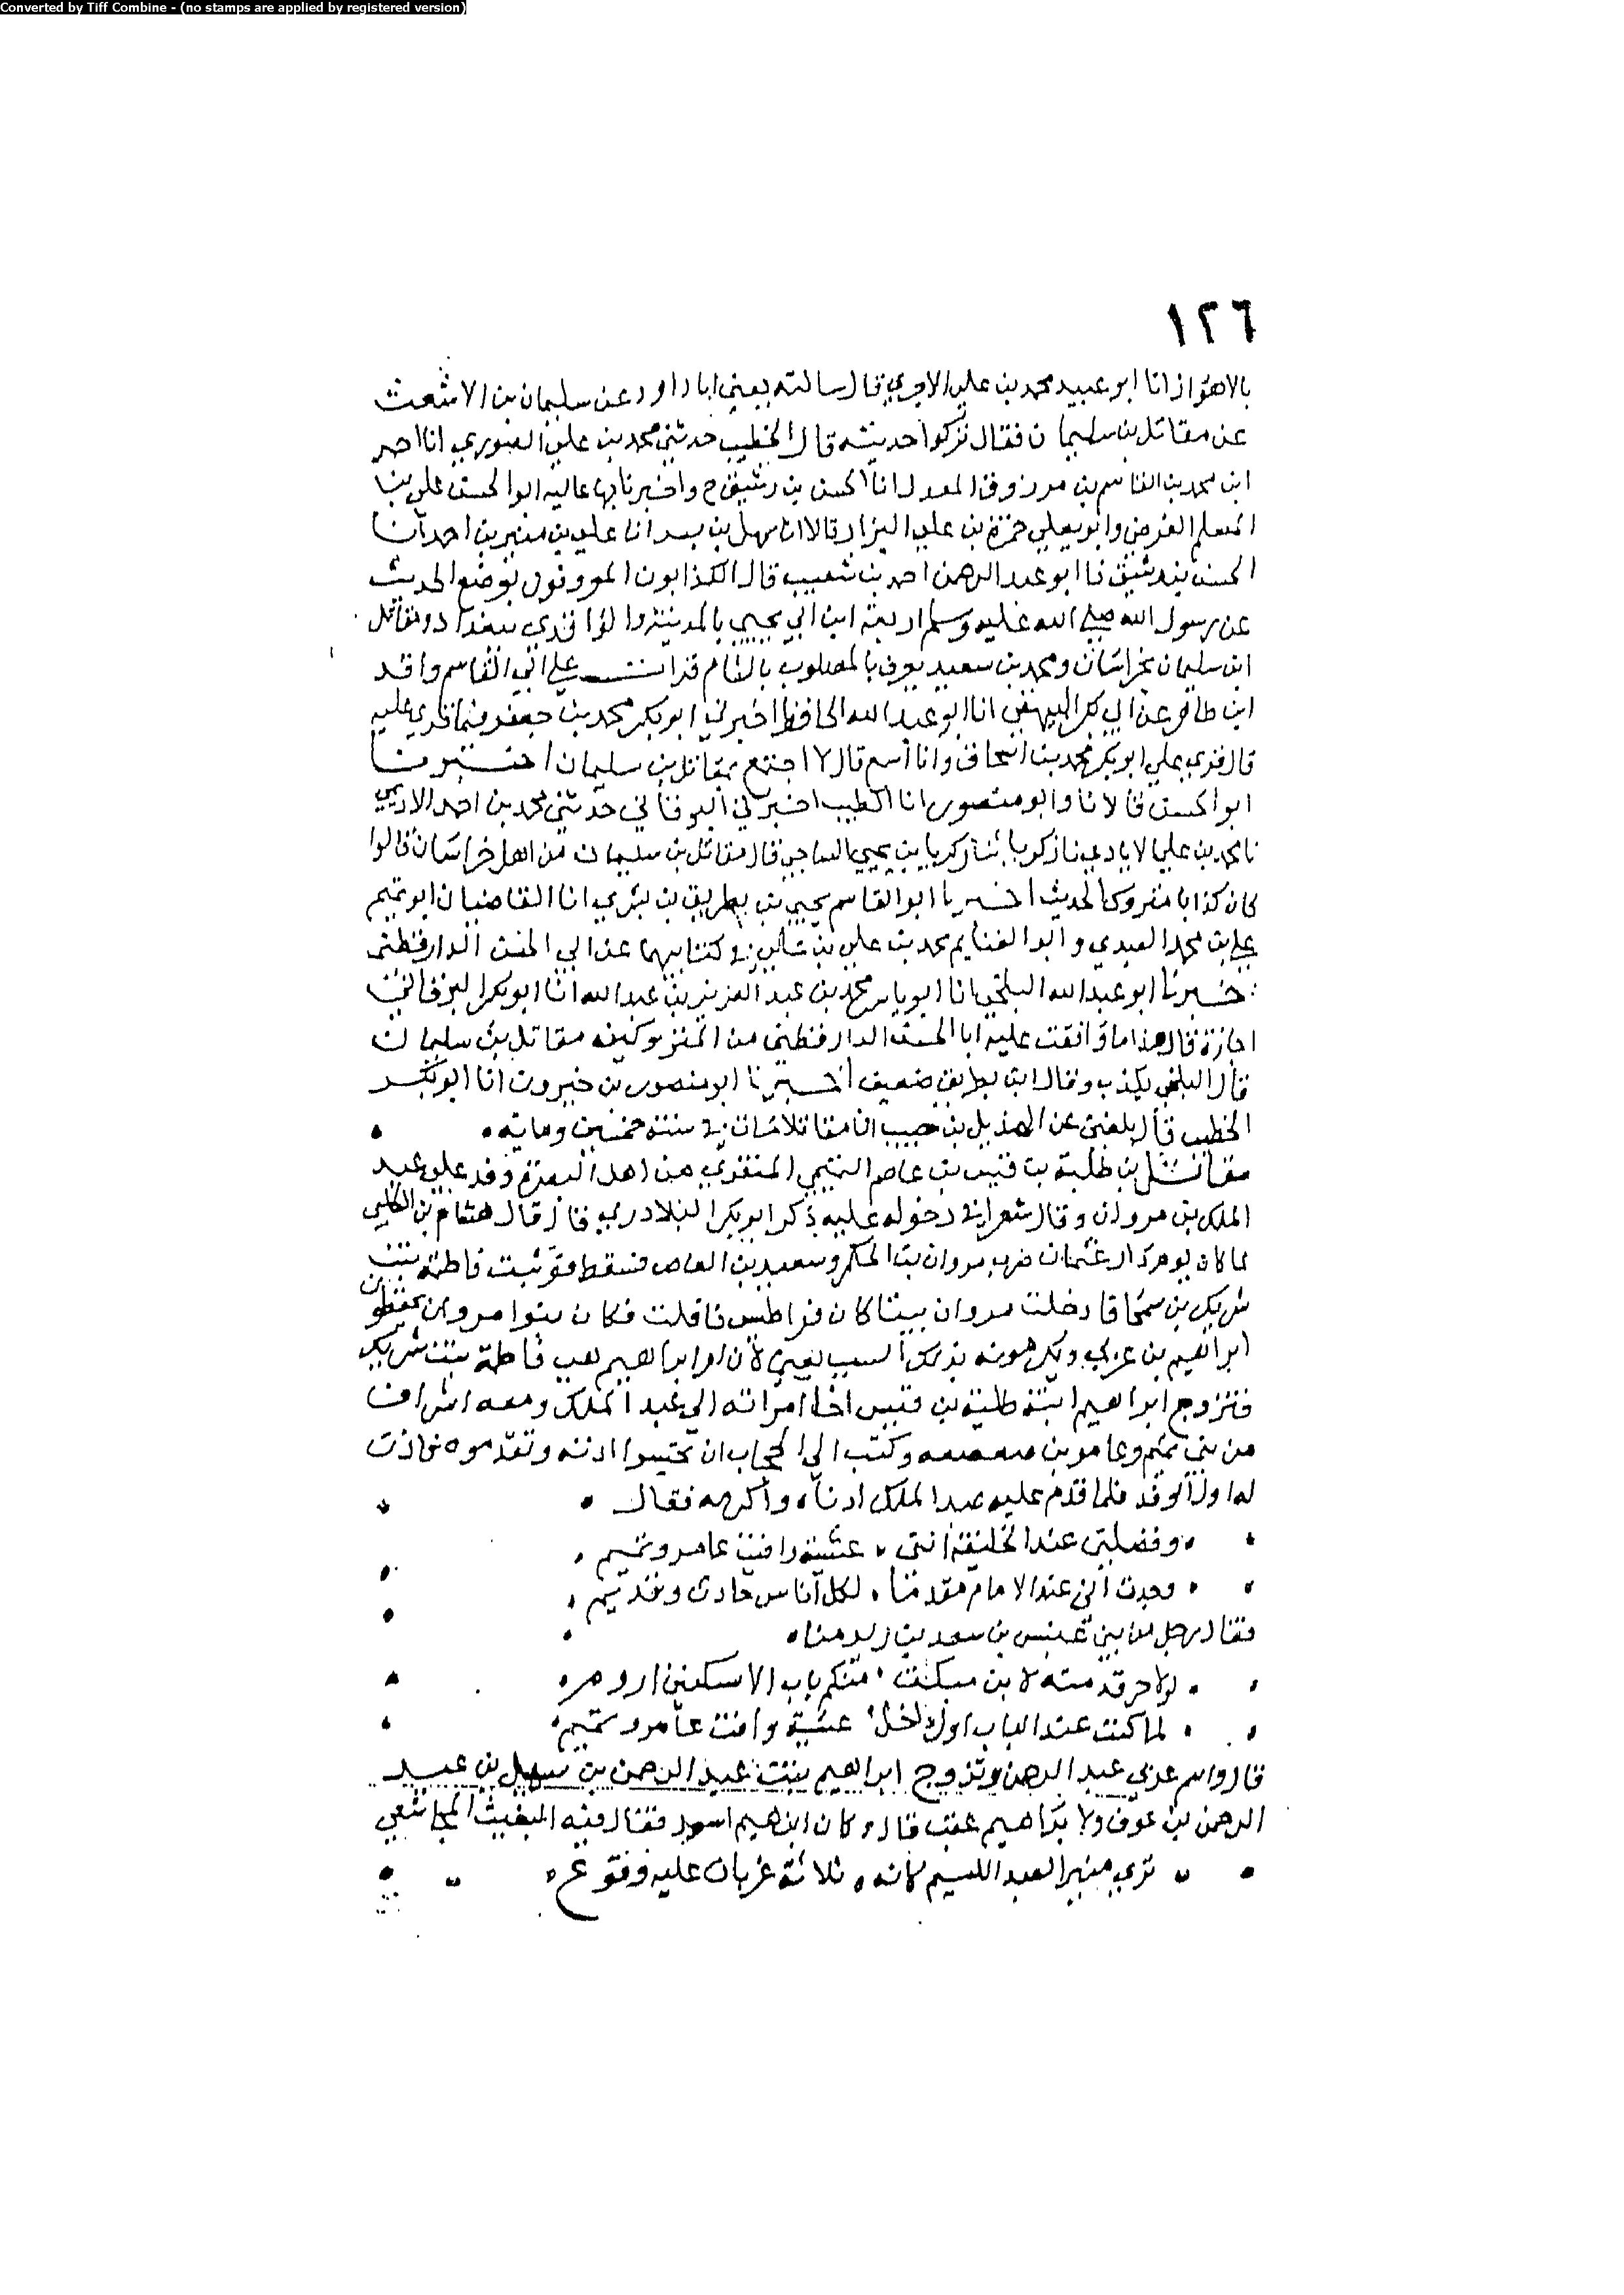 Converted by Tiff Combine - (no stamps are applied by registered version)
١٢٦
بالاهواز انا ابو عبيد محمد بن علي الاجري قال سالته يعني ابا داود عن سليمان بن الاشعث
عن مقاتل بن سليمان فقال تركوا حديثه قال الخطيب حدثني محمد بن علي الصوري انا احمد
ابن محمد بن القاسم بن مرزوق المعدل انا الحسن بن رشيق ح واخبرنا بها عاليه ابو الحسن علي بن
المسلم الفرضي وابو يعلي حمزة بن علي البزار قالا انا سهل بن بسر انا علي بن منير بن احمد انا
الحسن بن رشيق نا ابو عبد الرحمن احمد بن شعيب قال الكذابون المعروفون بوضع الحديث
عن رسول الله صلي الله عليه وسلم اربعة ابن ابي يحيي بالمدينة والواقدي ببغداد ومقاتل
ابن سليمان بخراسان ومحمد بن سعيد يعرف بالمصلوب بالشام قرات علي ابي القاسم واقد
ابن طاهر عن ابي بكر البيهقي انا ابو عبد الله الحافظ اخبرني ابو بكر محمد بن جعفر فيما قري عليه
قال قري علي ابو بكر محمد بن اسحاق وانا اسمع قال لا احتج بمقاتل بن سليمان اخبرنا
ابو الحسن قالا نا وابو منصور انا الخطيب اخبرني البرقاني حدثني محمد بن احمد الادمي
نا محمد بن علي الايادي نا زكريا بن يحيي الساجي قال مقاتل بن سليمان من اهل خراسان قالوا
كان كذابا متروك الحديث اخبرنا ابو القاسم يحيي بن بطريق بن بشري انا القاضيان ابو تميم
علي بن محمد العبدي وابو الغنايم محمد بن علي بن علي في كتابيهما عن ابي الحسن الدارقطني
خبرنا ابو عبد الله البلخي انا ابو ياسر محمد بن عبد العزيز بن عبد الله انا ابو بكر البرقاني
اجازة قال هذا ما وافقت عليه ابا الحسن الدارقطني من المتروكين مقاتل بن سليمان
قال البلخي يكذب وقال ابن بطريق ضعيف اخبرنا ابو منصور بن خيرون انا ابو بكر
الخطيب قال بلغني عن الهذيل بن حبيب ان مقاتلا مات في سنة خمسين ومايه
مقاتل بن طلبة بن قيس بن عاصم التميمي المنقري من اهل البصرة وفد علي عبد
الملك بن مروان وقال شعرا في دخوله عليه ذكر ابو بكر البلادري قال قال هشام بن الكلبي
لما كان يوم الدار عثمان ضرب مروان بن الحكم وسعيد بن العاص فسقط فوثبت فاطمة بنت
شريك بن سمحا فادخلت مروان بيتا كان فراطيس فافلت فكان بنوا مروان يحفظون
ابراهيم بن عربي ويكرمونه بذلك السبب يعني لان ام ابراهيم هي فاطمة بنت شريك
فتزوج ابراهيم ابنة طلبة بن قيس اخا امراته الي عبد الملك ومعه اشراف
من بني تميم وعامر بن صعصعه وكتب الي الحجاب ان تحسنوا اذنه وتقدموه فاذن
له اول الوفد فلما قدم عليه عبد الملك ادناه واكرمه فقال
وفضلني عند الخليفة انني عشية وافت عامر وتميم
وجدت ابي عند الامام مقدما لكل اناس حادث وقديم
فقال رجل من بني عبس بن سعد بن زيد مناه
لولا حر قدمته لابن منكم باب الاسكتين ازوم
لما كنت عند الباب اول داخل عشية وافت عامر وتميم
قال واسم عربي عبد الرحمن وتزوج ابراهيم بنت عبد الرحمن بن سهيل بن عبد
الرحمن بن عوف ولابراهيم عقب قال وكان ابراهيم اسود فقال فيه البعيث المجاشعي
تري منبر العبد اللييم كانه ثلاثة غربان عليه وقوع